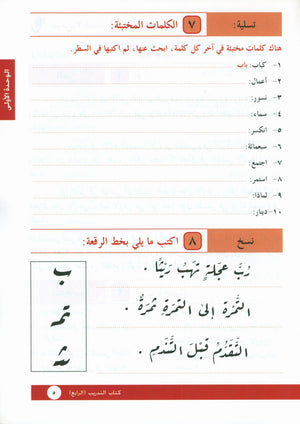 تسلية: ٧ الكلمات المختبئة:
هناك كلمات مختبئة في آخر كل كلمة، ابحث عنها، ثم اكتبها في السطر.
١- كباب: باب
٢- أعمال:
٣- نسور:
٤- سماء:
٥- انكسر:
٦- سبعمائة:
٧- اجتمع:
٨- استمر:
٩- لماذا:
١٠- دينار:
الوحدة الأولى
نسخ ٨ اكتب ما يلي بخط الرقعة:
رُبَّ عَجَلَةٍ تَهَبُ رَيْثًا .
التَّمْرَةُ إلى التمرَةِ تمرٌ .
التَّقَدُّمُ قَبْلَ التَّنَدُّمِ .
ب
تمر
كتاب التدريب (الرابع) ٥